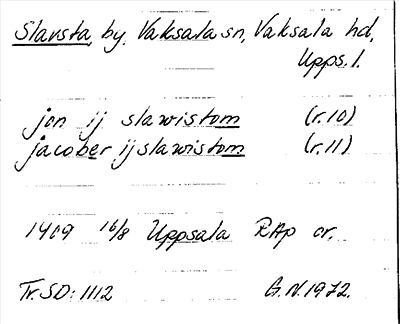 Slavsta, by, Vaksala sn, Vaksala hd,
Upps. l.
jon ij slawistom (r. 10)
jacober ij slawistom (r. 11)
1409 16/8 Uppsala RAp or.
Tr. SD: 1112 G.N. 1972.